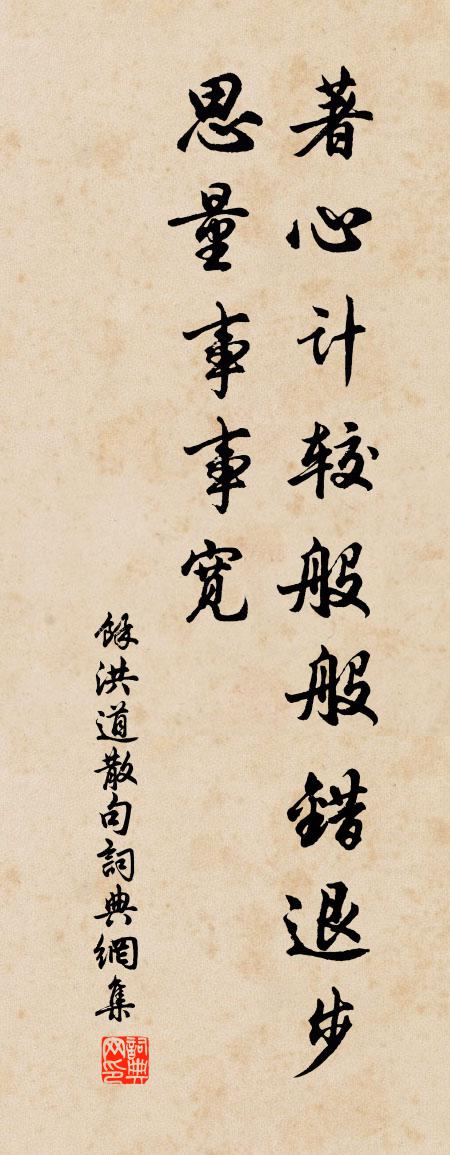 著心计较般般错退步
思量事事宽
餘洪道散句詞典網集
詞典网印